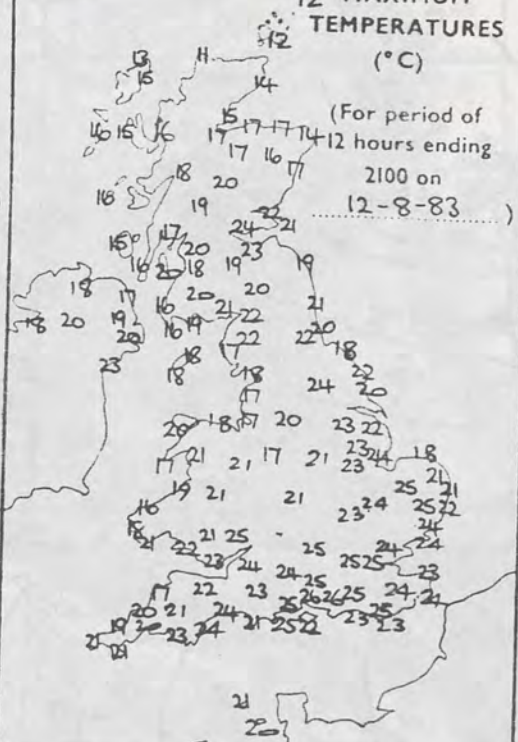 12 MAXIMUM
TEMPERATURES
(°C)
(For period of
12 hours ending
2100 on
12-8-83 )
12
13 11
15 14
15
16 15 16 17 17 17 14
17 16 17
18
16 20
19 22
24 21
15 17 20 23
16 20 18 19 19
18 17 16 20 20 21
18 20 19 16 19 21 22 22 20
20 17 22 18
23 18 18 22
18 17 24 20
20 18 17 20 23 22
17 21 21 17 21 23 23 24 18
19 21 21 25 21 21
16 23 24 25 22
18 24
21 22 21 25 25 24 24
23 24 24 25 25 23
17 22 23 25 26 26 25 24 24
20 21 24 25 25
19 20 23 24 21 25 22 23 23
21 21
21
20